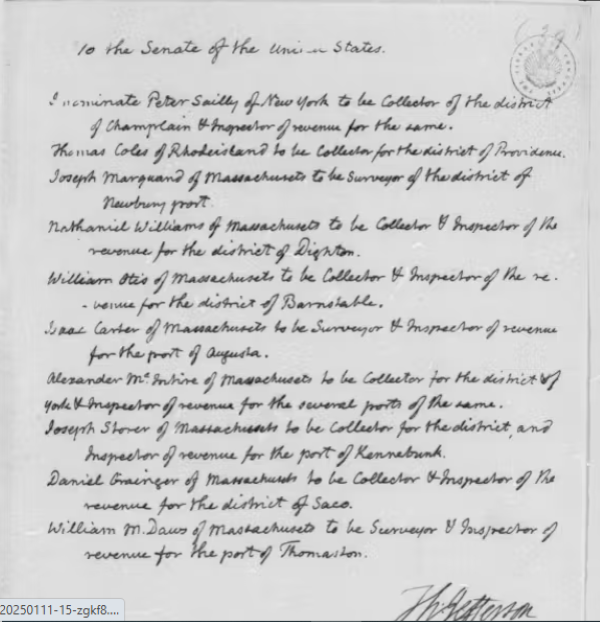 To the Senate of the United States.
I nominate Peter Sailly of New York to be Collector of the district
of Champlain & Inspector of revenue for the same.
Thomas Coles of Rhodeisland to be Collector for the district of Providence.
Joseph Marquand of Massachusets to be Surveyor of the district of
Newbury port.
Nathaniel Williams of Massachusets to be Collector & Inspector of the
revenue for the district of Dighton.
William Otis of Massachusets to be Collector & Inspector of the re-
-venue for the district of Barnstable.
Isaac Carter of Massachusets to be Surveyor & Inspector of revenue
for the port of Augusta.
Alexander Mc.Intire of Massachusets to be Collector for the district of
York & Inspector of revenue for the several ports of the same.
Joseph Storer of Massachusets to be Collector for the district, and
Inspector of revenue for the port of Kennebunk.
Daniel Grainger of Massachusets to be Collector & Inspector of the
revenue for the district of Saco.
William M. Daws of Massachusets to be Surveyor & Inspector of
revenue for the port of Thomaston.
Th: Jefferson
20250111-15-zgkf8....